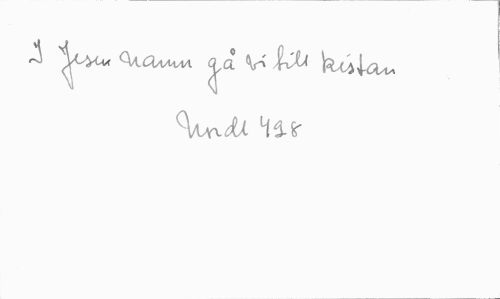 I Jesu namn gå vi till kistan
Nordt 498